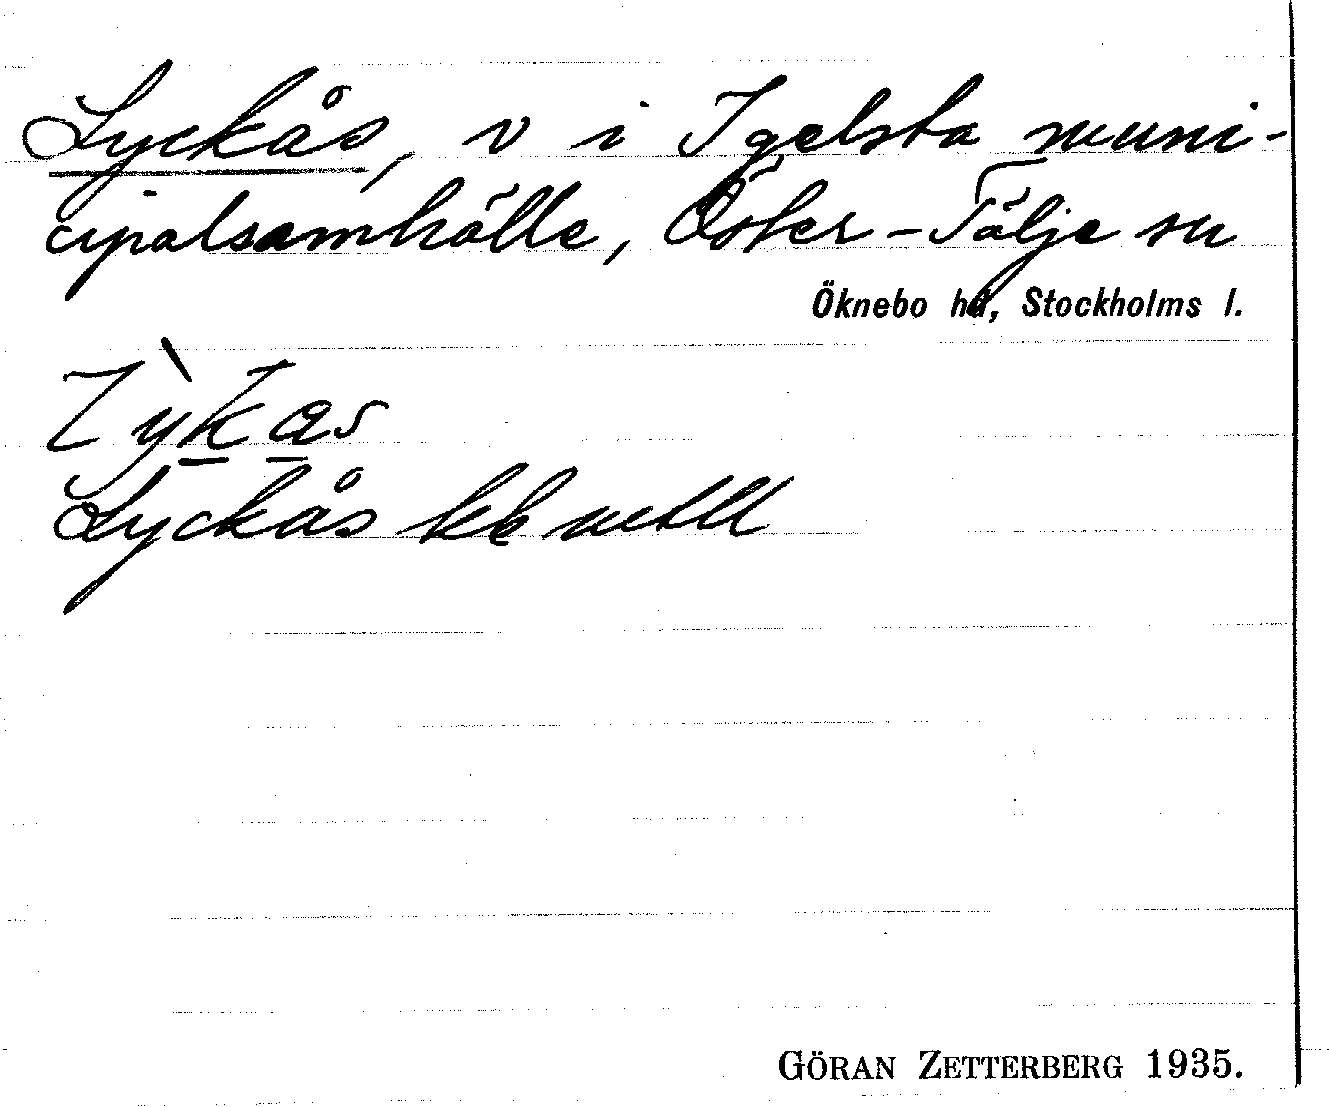 Lyckås, v i Igelsta muni-
cipalsamhälle, Öster-Tälje sn
Öknebo hd, Stockholms l.
Lỳkas
Lyckås
GÖRAN ZETTERBERG 1935.